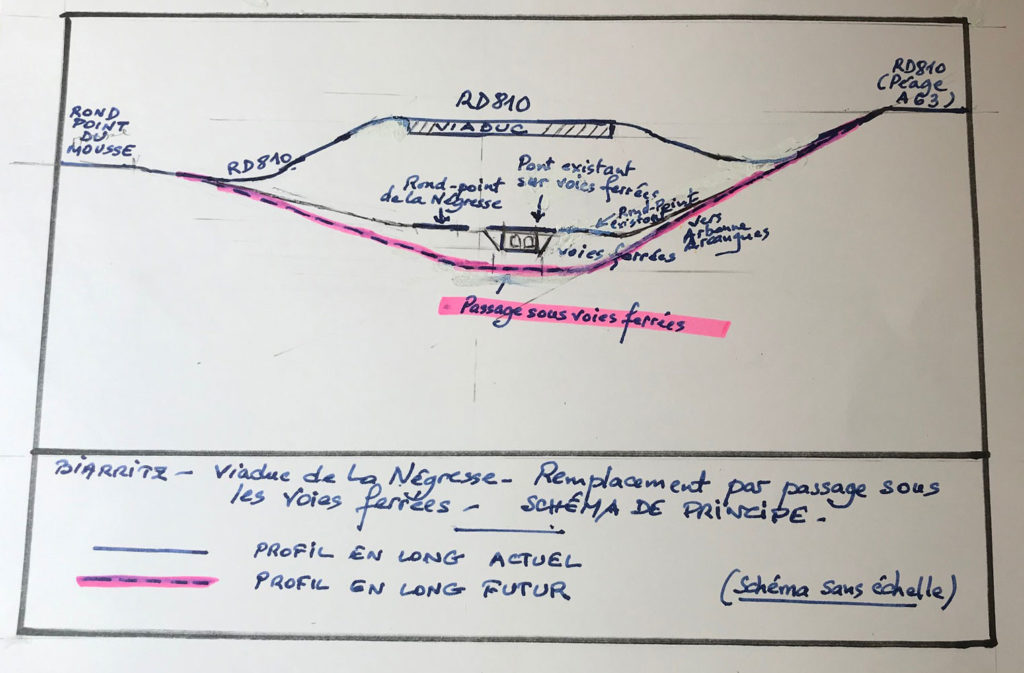 RD810
(Péage
A63)
RD810
VIADUC
ROND
POINT
DU
MOUSSE
RD810
Pont existant
sur voies ferrées
Rond-point
de la Négresse
Rond-Point
existant
vers
Arbonne
Arcangues
voies ferrées
Passage sous voies ferrées
BIARRITZ - Viaduc de La Négresse - Remplacement par passage sous
les voies ferrées - SCHÉMA DE PRINCIPE.
PROFIL EN LONG ACTUEL
PROFIL EN LONG FUTUR
(Schéma sans échelle)